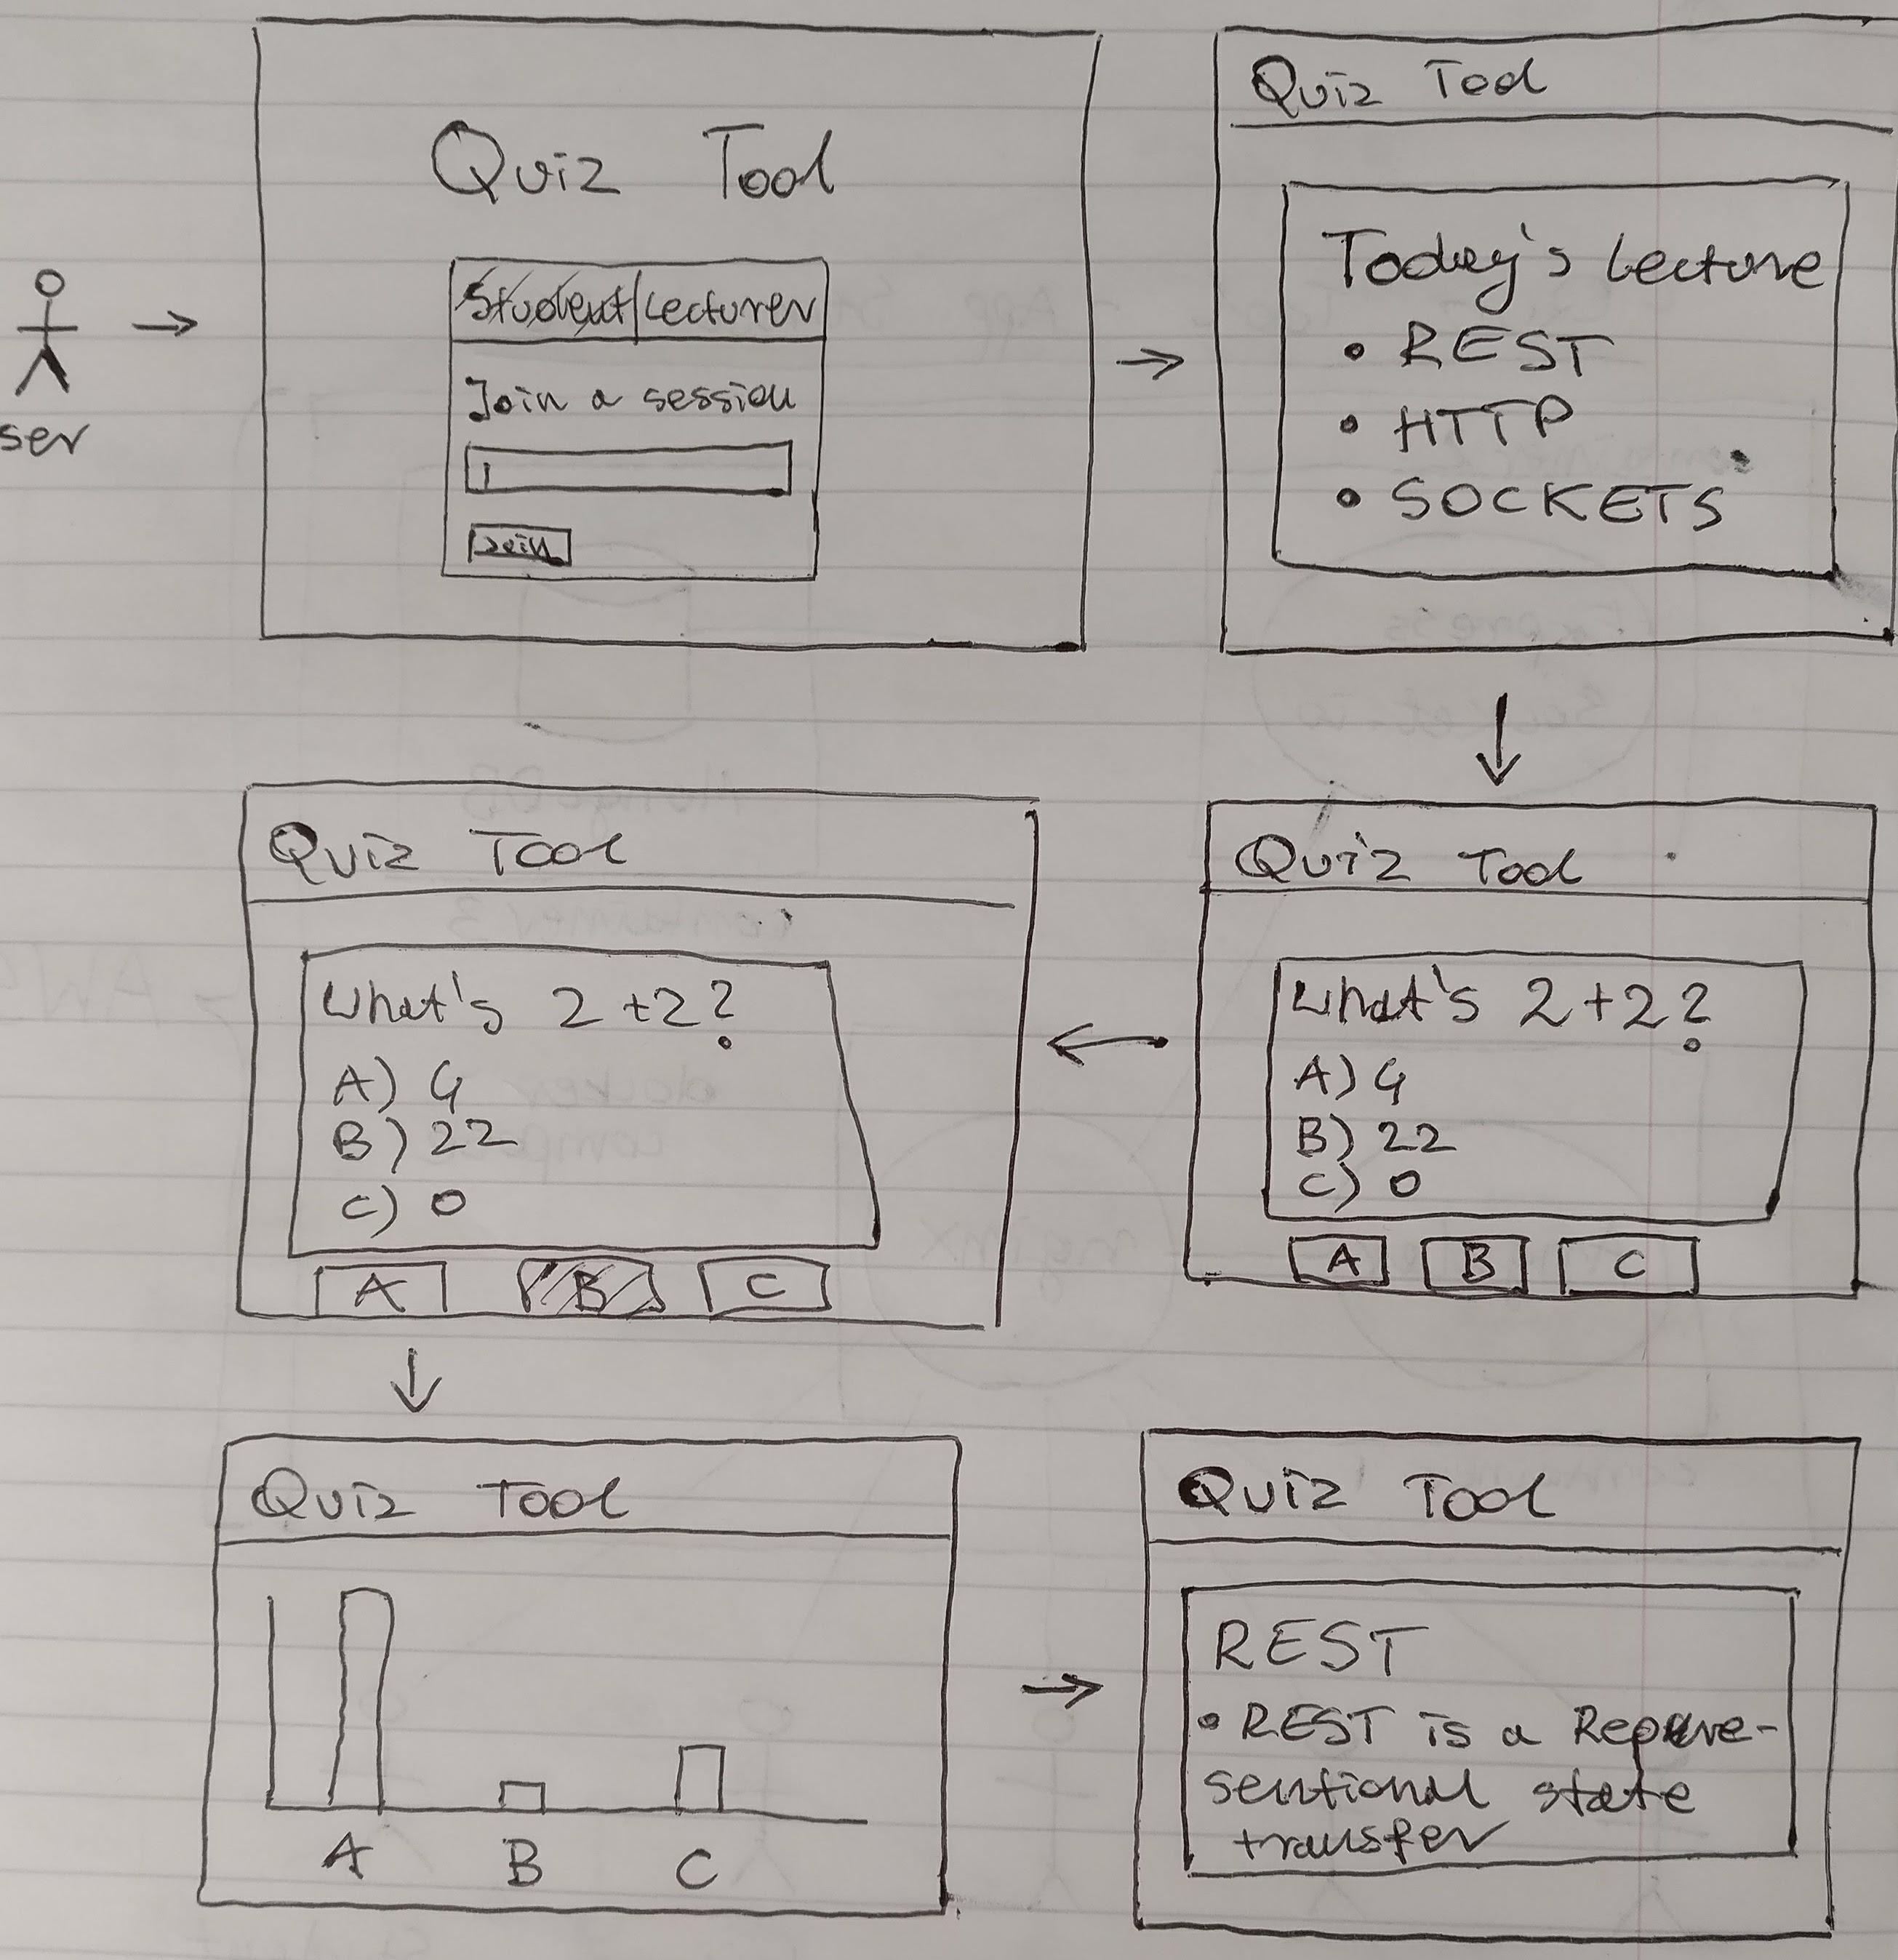 Quiz Tool
Student|Lecturer
Join a session
Join
ser
Quiz Tool
Today's Lecture
• REST
• HTTP
• SOCKETS
Quiz Tool
What's 2+2?
A) 4
B) 22
C) 0
A B C
Quiz Tool
What's 2+2?
A) 4
B) 22
C) 0
A B C
Quiz Tool
A B C
Quiz Tool
REST
• REST is a Repre-
sentional state
transfer